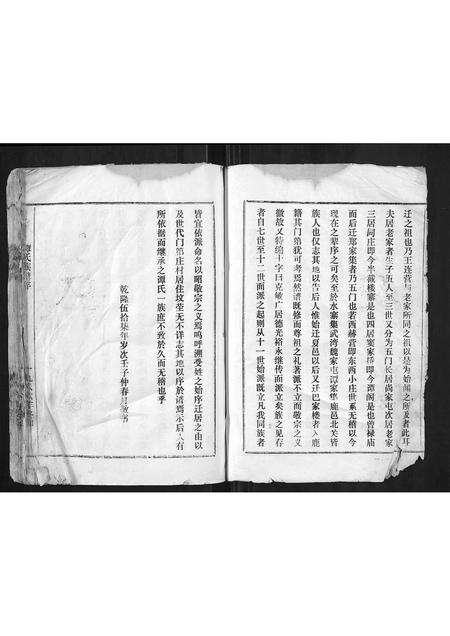 迁之祖也乃王连营 老家所同之祖以是为始闻之所及者此耳
夫居老家者生子五人至三世又分为五门长居尚家屯次居老家
三居问庄即今半截楼寨是也四居窦家桥即今谭阁是也曾禄庙
而后迁那家集者乃五门也若西赫营即东西小庄世系无稽以今
现在之辈序之可矣至於水寨集武湾魏家屯谭家集鹿邑北关皆
族人也仅志其地以告后人惟始迁夏邑以后又迁巴家楼者入鹿
籍其门第犹可考焉然谱既修而尊祖之礼著派不立而敬宗之义
微故又特编十字曰克敏广居德光裕永继传而派立矣族之见存
者自七世至十二世而派之起则从十一世始派既立凡我同族者
皆宜依派命名以昭敬宗之义焉呜呼溯受姓之始序迁居之由以
及世代门第庄村居住坟茔无不详志其地以序於谱焉示后人有
所依据而继承之谭氏一族庶不致於久而无稽也乎
乾隆伍拾柒年岁次壬子仲春月